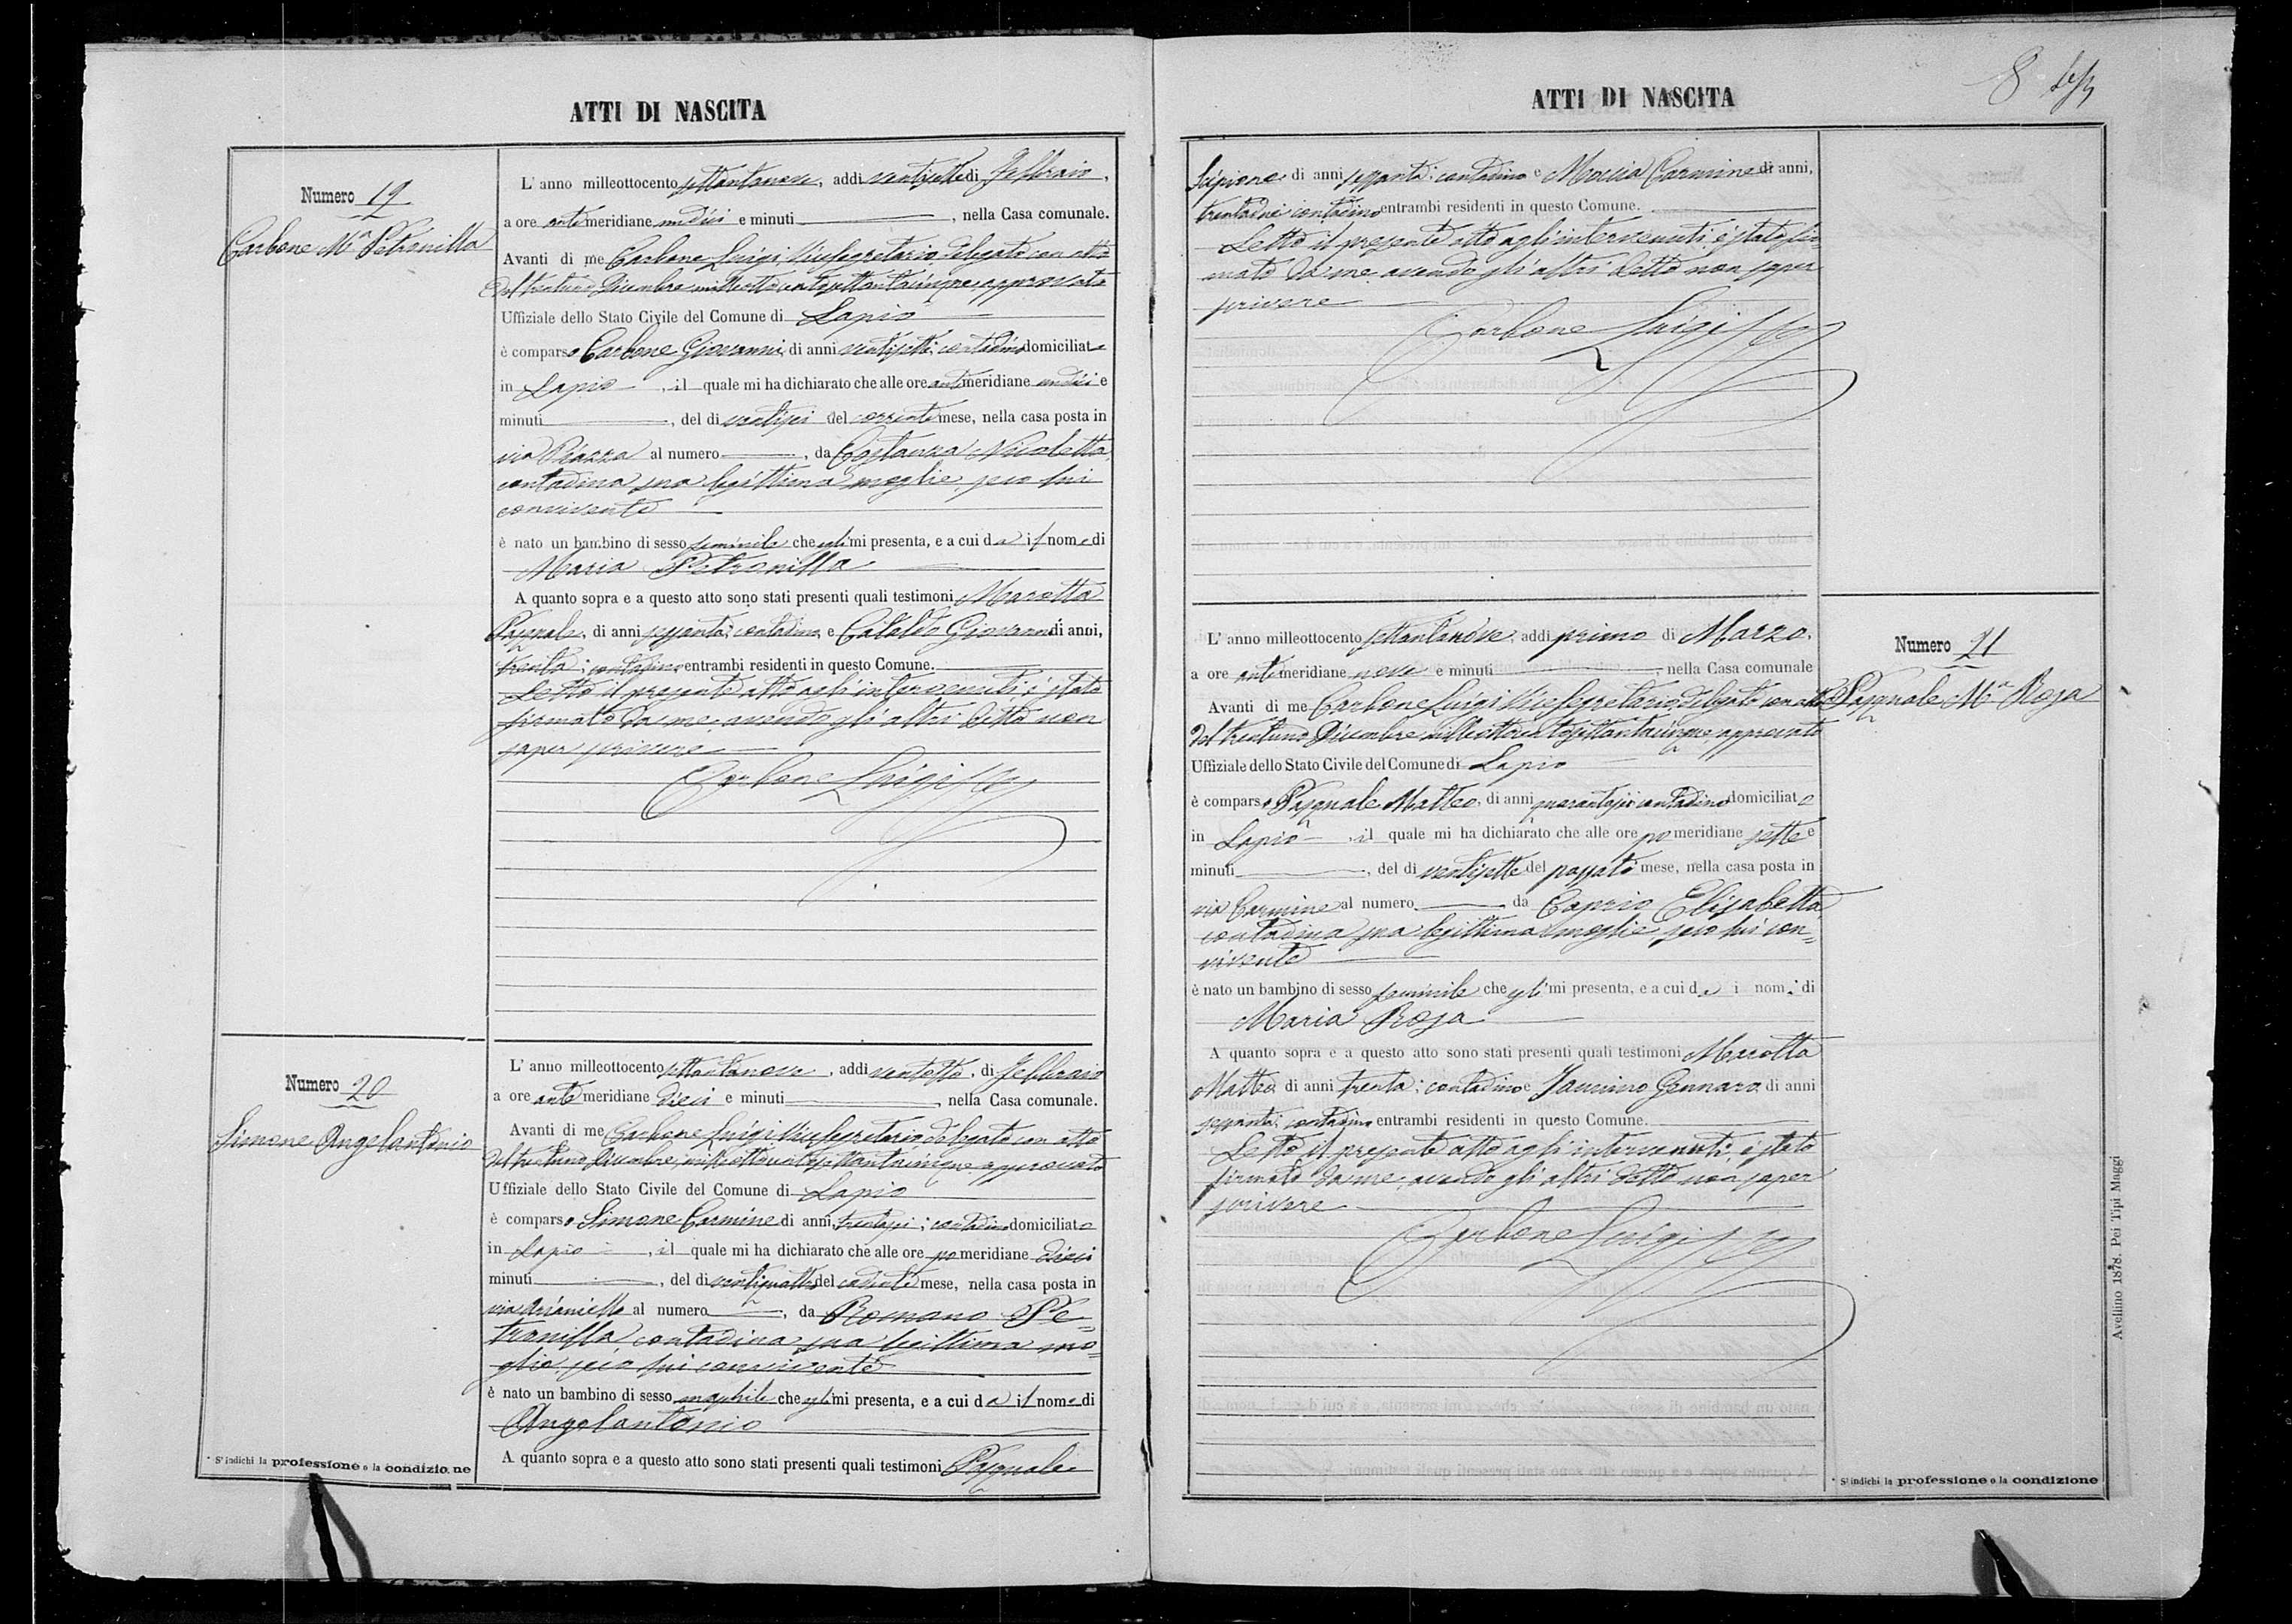 ATTI DI NASCITA
Numero 19
Carbone M.a Petronilla
L' anno milleottocento settantanove, addi ventisette di Febbraio,
a ore antimeridiane undici e minuti , nella Casa comunale.
Avanti di me Carbone Luigi Vicesegretario delegato con atto
del trentuno Dicembre milleottocentosettantacinque approvato
Uffiziale dello Stato Civile del Comune di Lapio
è comparso Carbone Giovanni, di anni ventisette, contadino domiciliato
in Lapio , il quale mi ha dichiarato che alle ore antimeridiane undici e
minuti , del di ventisei del corrente mese, nella casa posta in
via Piazza al numero , da Costanza Nicoletta,
contadina sua legittima moglie, seco lui
convivente
è nato un bambino di sesso feminile che egli mi presenta, e a cui dà il nome di
Maria Petronilla
A quanto sopra e a questo atto sono stati presenti quali testimoni Marotta
Pasquale, di anni sessanta, contadino, e Cataldo Giovanni di anni,
trenta; contadino entrambi residenti in questo Comune.
Letto il presente atto agli intervenuti è stato
firmato da me, avendo gli altri detto non
saper scrivere
Carbone Luigi
Numero 20
Simone Angelantonio
L' anno milleottocento settantanove, addi ventotto, di Febbraio
a ore antemeridiane dieci e minuti , nella Casa comunale.
Avanti di me Carbone Luigi Vicesegretario delegato con atto
del trentuno Dicembre milleottocentosettantacinque approvato
Uffiziale dello Stato Civile del Comune di Lapio
è comparso Simone Carmine di anni trentasei; contadino domiciliato
in Lapio , il quale mi ha dichiarato che alle ore pomeridiane dieci
minuti , del di ventiquattro del cadente mese, nella casa posta in
via Arianiello al numero , da Romano Pe=
tronilla, contadina sua legittima mo=
glie seco lui convivente
è nato un bambino di sesso maschile che egli mi presenta, e a cui dà il nome di
Angelantonio
A quanto sopra e a questo atto sono stati presenti quali testimoni Pasquale
* S' indichi la professione o la condizione
ATTI DI NASCITA
8
Scipione di anni sessanta; contadino e Moccia Carmine di anni,
trentadue contadino entrambi residenti in questo Comune.
Letto il presente atto agli intervenuti, è stato fir=
mato da me avendo gli altri detto non saper
scrivere
Carbone Luigi
Numero 21
Pasquale M.a Rosa
L' anno milleottocento settantanove, addi primo di Marzo,
a ore antimeridiane nove e minuti , nella Casa comunale
Avanti di me Carbone Luigi Vicesegretario, delegato con atto
del trentuno Dicembre milleottocentosettantacinque, approvato
Uffiziale dello Stato Civile del Comune di Lapio
è comparso Pasquale Matteo, di anni quarantasei contadino domiciliato
in Lapio , il quale mi ha dichiarato che alle ore pomeridiane sette e
minuti , del di ventisette del passato mese, nella casa posta in
via Carmine al numero da Caprio Elisabetta,
contadina sua legittima moglie seco lui con=
vivente
è nato un bambino di sesso feminile che egli mi presenta, e a cui dà i nomi di
Maria Rosa
A quanto sopra e a questo atto sono stati presenti quali testimoni Marotta
Matteo di anni trenta; contadino e Iannino Gennaro di anni
sessanta; contadino entrambi residenti in questo Comune.
Letto il presente atto agli intervenuti, è stato
firmato da me, avendo gli altri detto non saper
scrivere
Carbone Luigi
* S' indichi la professione o la condizione
Avellino 1878. Pei Tipi Maggi